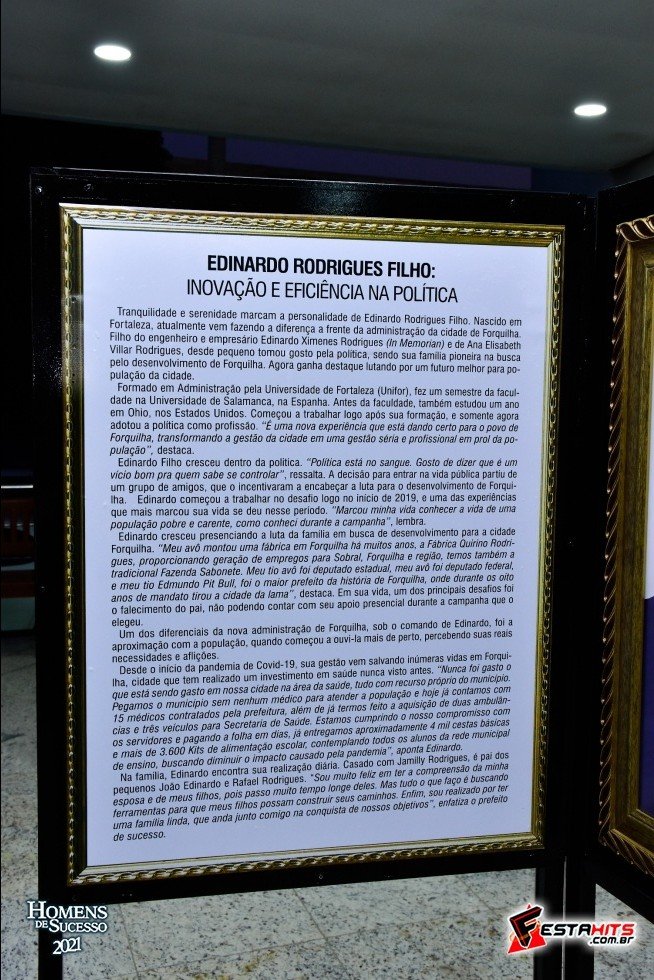 EDINARDO RODRIGUES FILHO:
INOVAÇÃO E EFICIÊNCIA NA POLÍTICA
Tranquilidade e serenidade marcam a personalidade de Edinardo Rodrigues Filho. Nascido em
Fortaleza, atualmente vem fazendo a diferença a frente da administração da cidade de Forquilha.
Filho do engenheiro e empresário Edinardo Ximenes Rodrigues (In Memorian) e de Ana Elisabeth
Villar Rodrigues, desde pequeno tomou gosto pela política, sendo sua família pioneira na busca
pelo desenvolvimento de Forquilha. Agora ganha destaque lutando por um futuro melhor para po-
pulação da cidade.
Formado em Administração pela Universidade de Fortaleza (Unifor), fez um semestre da facul-
dade na Universidade de Salamanca, na Espanha. Antes da faculdade, também estudou um ano
em Ohio, nos Estados Unidos. Começou a trabalhar logo após sua formação, e somente agora
adotou a política como profissão. “É uma nova experiência que está dando certo para o povo de
Forquilha, transformando a gestão da cidade em uma gestão séria e profissional em prol da po-
pulação”, destaca.
Edinardo Filho cresceu dentro da política. “Política está no sangue. Gosto de dizer que é um
vício bom pra quem sabe se controlar”, ressalta. A decisão para entrar na vida pública partiu de
um grupo de amigos, que o incentivaram a encabeçar a luta para o desenvolvimento de Forqui-
lha. Edinardo começou a trabalhar no desafio logo no início de 2019, e uma das experiências
que mais marcou sua vida se deu nesse período. “Marcou minha vida conhecer a vida de uma
população pobre e carente, como conheci durante a campanha”, lembra.
Edinardo cresceu presenciando a luta da família em busca de desenvolvimento para a cidade
Forquilha. “Meu avô montou uma fábrica em Forquilha há muitos anos, a Fábrica Quirino Rodri-
gues, proporcionando geração de empregos para Sobral, Forquilha e região, temos também a
tradicional Fazenda Sabonete. Meu tio avô foi deputado estadual, meu avô foi deputado federal,
e meu tio Edmundo Pit Bull, foi o maior prefeito da história de Forquilha, onde durante os oito
anos de mandato tirou a cidade da lama”, destaca. Em sua vida, um dos principais desafios foi
o falecimento do pai, não podendo contar com seu apoio presencial durante a campanha que o
elegeu.
Um dos diferenciais da nova administração de Forquilha, sob o comando de Edinardo, foi a
aproximação com a população, quando começou a ouvi-la mais de perto, percebendo suas reais
necessidades e aflições.
Desde o início da pandemia de Covid-19, sua gestão vem salvando inúmeras vidas em Forqui-
lha, cidade que tem realizado um investimento em saúde nunca visto antes. “Nunca foi gasto o
que está sendo gasto em nossa cidade na área da saúde, tudo com recurso próprio do município.
Pegamos o município sem nenhum médico para atender a população e hoje já contamos com
15 médicos contratados pela prefeitura, além de já termos feito a aquisição de duas ambulân-
cias e três veículos para Secretaria de Saúde. Estamos cumprindo o nosso compromisso com
os servidores e pagando a folha em dias, já entregamos aproximadamente 4 mil cestas básicas
e mais de 3.600 Kits de alimentação escolar, contemplando todos os alunos da rede municipal
de ensino, buscando diminuir o impacto causado pela pandemia”, aponta Edinardo.
Na família, Edinardo encontra sua realização diária. Casado com Jamilly Rodrigues, é pai dos
pequenos João Edinardo e Rafael Rodrigues. “Sou muito feliz em ter a compreensão da minha
esposa e de meus filhos, pois passo muito tempo longe deles. Mas tudo o que faço é buscando
ferramentas para que meus filhos possam construir seus caminhos. Enfim, sou realizado por ter
uma família linda, que anda junto comigo na conquista de nossos objetivos”, enfatiza o prefeito
de sucesso.
HOMENS
DE SUCESSO
2021
FESTAHITS
.com.br